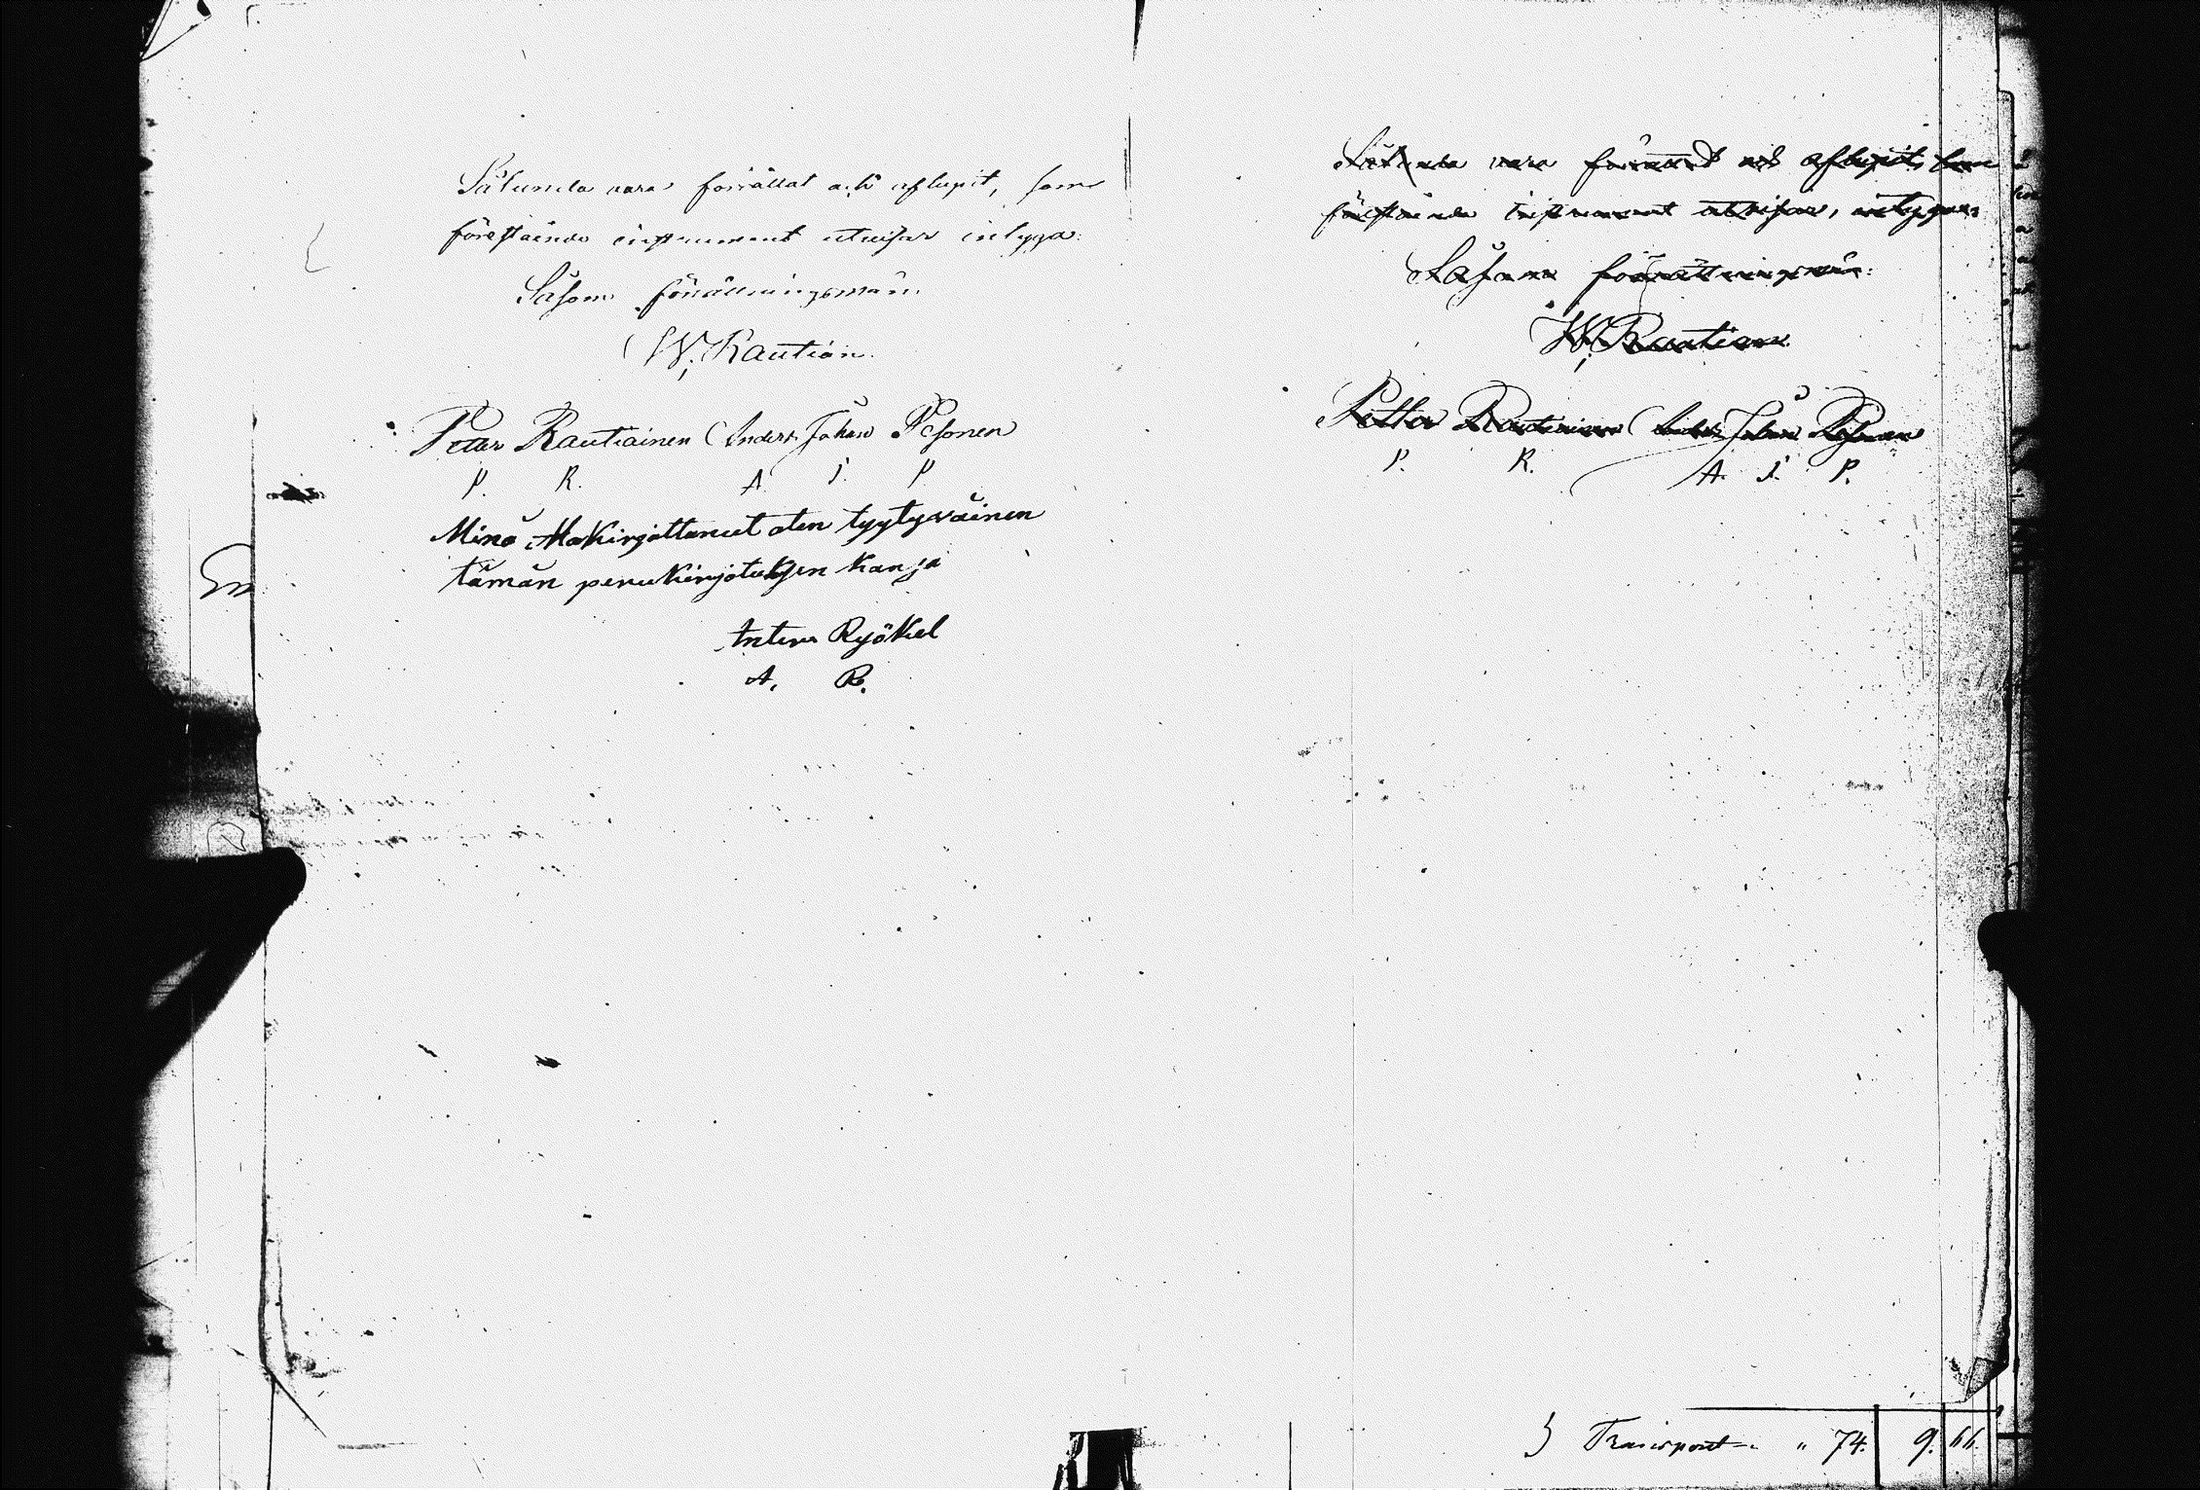 Sålunda vara förrättat och aflupit, som
förestående instrument utvisar intyga:
Såsom förrättningsman:
W. Rautian.
Petter Rautiainen Anders Johan Pesonen
P. R. A. J. P
Minä Allakirjoittanut olen tyytyväinen
tämän perukirjotuksen kanssa
Antero Ryökel
A. R.
Sålunda vara förrättadt och aflupit, som
förestående instrument utvisar, intygar:
Såsom förrättningsman:
W. Rautian
Petter Rautiainen Anders Johan Pesonen
P. R. A. J. P.
Transport " 74. 9. 66.